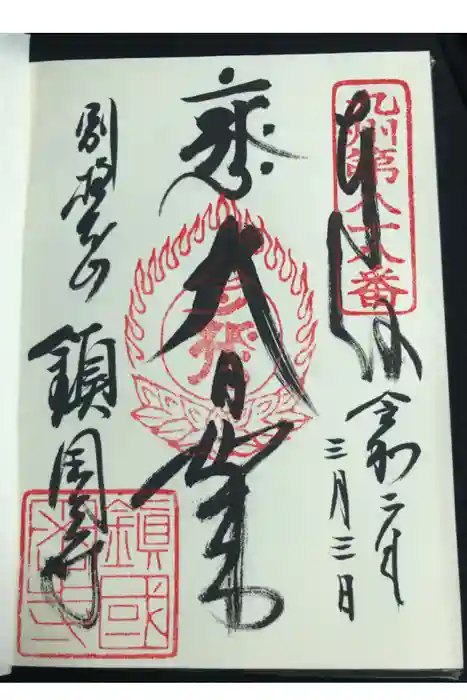 九州第八十八番
奉拝
令和二年
三月三日
大日如来
別格本山
鎮国寺
鎮國